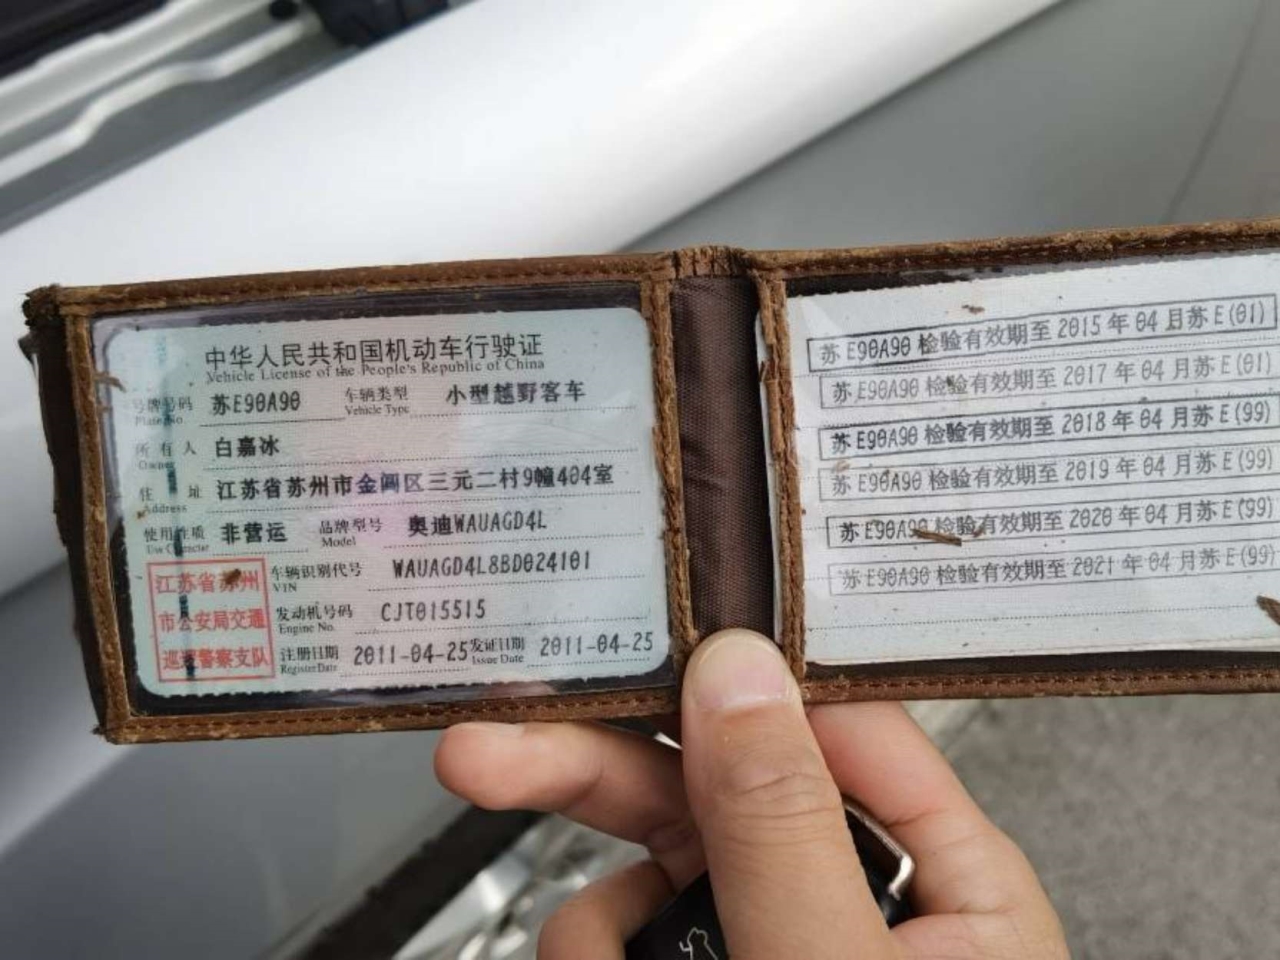 中华人民共和国机动车行驶证
Vehicle License of the People's Republic of China
号牌号码 苏E90A90 车辆类型 小型越野客车
Plate No. Vehicle Type
所有人 白嘉冰
Owner
住址 江苏省苏州市金阊区三元二村9幢404室
Address
使用性质 非营运 品牌型号 奥迪WAUAGD4L
Use Character Model
车辆识别代号 WAUAGD4L8BD024101
VIN
发动机号码 CJT015515
Engine No.
注册日期 2011-04-25 发证日期 2011-04-25
Register Date Issue Date
江苏省苏州
市公安局交通
巡逻警察支队
苏E90A90检验有效期至2015年04月苏E(01)
苏E90A90检验有效期至2017年04月苏E(01)
苏E90A90检验有效期至2018年04月苏E(99)
苏E90A90检验有效期至2019年04月苏E(99)
苏E90A90检验有效期至2020年04月苏E(99)
苏E90A90检验有效期至2021年04月苏E(99)